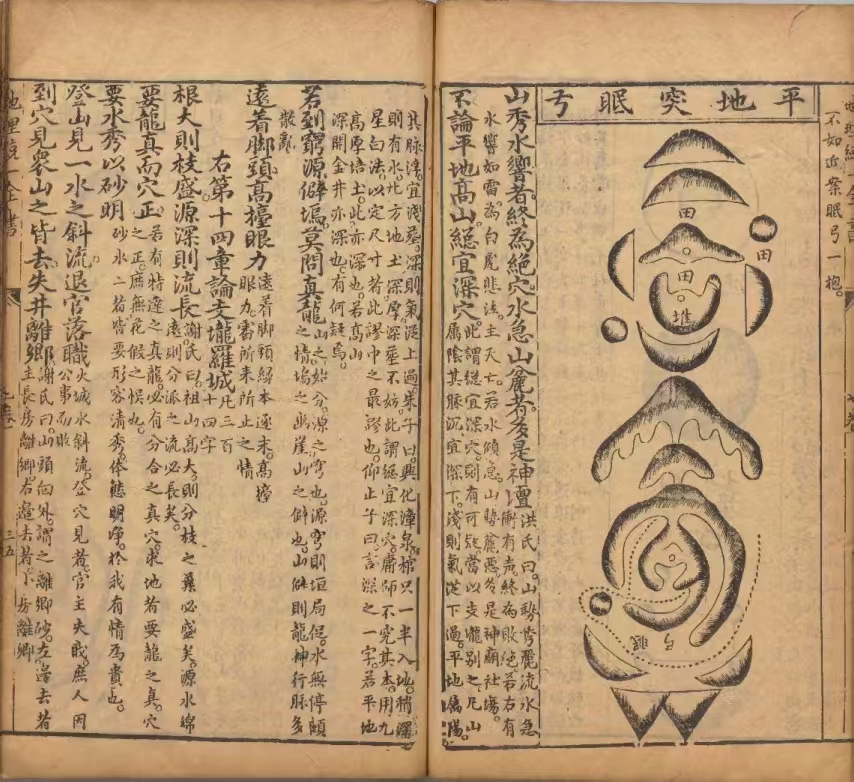 不如近案眠弓一抱
平地突眠弓
田
田
田
堆
弓
眠
山秀水響者終為絕穴水急山麄者多是神壇
洪氏曰山勢秀麗流水急
衝有声終為敗絕若右有
水響如雷為白虎悲泣主夭亡若水傾急山勢麄悪多是神廟社壇
不論平地高山緫宜深穴
此謂緫宜深穴則有可疑當以支壠別之凡山
属陰其脉沉宜深下淺則氣從下過平地属陽
其脉浮宜淺葬深則氣從上過朱子曰興化漳泉棺只一半入地稍深
則有水北方地土深厚深葬不妨此謂緫宜深穴庸師不究其本用九
星白法以定尺寸若此謬中之最謬也仰止子曰言深之一字若平地
高厚培土此亦深也若高山
深開金井亦深也有何疑焉
若到窮源僻塢莫問真龍
山之始分源之窮也源窮則垣局促水無停頋
之情塢之幽崖山之僻也山僻則龍神行脉多
散亂
遠着脚頭高擡眼力
遠着脚頭緑本逐末高擡
眼力審所來所止之情
右第十四章論支壠羅城
凡三百
十四字
根大則枝盛源深則流長
謝氏曰祖山高大則分枝之龔必盛矣源水綿
遠則分派之流必長矣
要龍真而穴正
若有特達之真龍必有分合之真穴求地者要龍之真穴
之正庶無花假之悞也
要水秀以砂明
砂水二者皆要形容清秀体態明净於我有情為貴也
登山見一水之斜流退官落職
火城水斜流登穴見者官主失職庶人因
公事而敗
到穴見衆山之皆去失井離鄉
謝氏曰山頭向外謂之離鄉砂左邉去者
主長房離鄉右邉去者小房離鄉
地理統一全書
七卷
三五